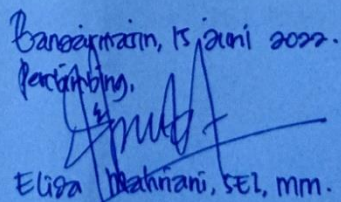 Banjarmasin, 15 juni 2022.
Pembimbing,
Elisa Mahriani, SEI, mm.